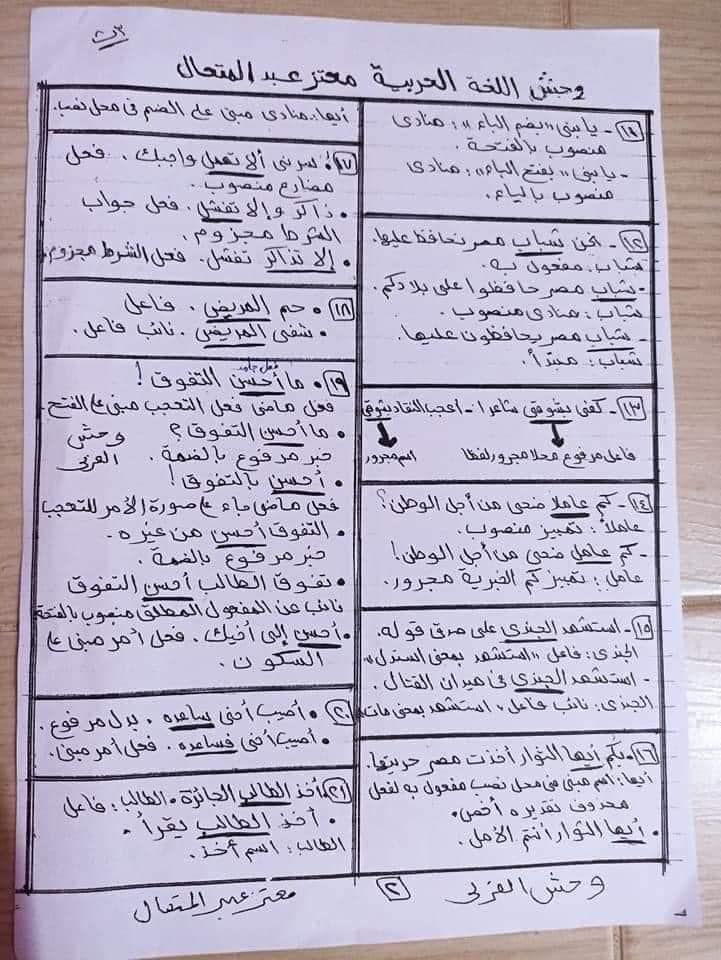 وحش اللغة العربية معتز عبد المتعال
١١ - يا بنى "بضم الباء": منادى
منصوب بالفتحة.
- يا بنى "بفتح الباء": منادى
منصوب بالياء.
١٢ - نحن شباب مصر نحافظ عليها.
شباب: مفعول به.
- شباب مصر حافظوا على بلادكم.
شباب: منادى منصوب.
- شباب مصر يحافظون عليها.
شباب: مبتدأ.
١٣ - كفى بشوقى شاعرا - أعجب النقاد بشوقى
فاعل مرفوع محلا مجرور لفظا
اسم مجرور
١٤ - كم عاملا ضحى من أجل الوطن؟
عاملاً: تمييز منصوب.
- كم عامل ضحى من أجل الوطن!
عامل: تمييز كم الخبرية مجرور.
١٥ - استشهد الجندى على صدق قوله.
الجندى: فاعل "استشهد بمعنى استدل"
- استشهد الجندى فى ميدان القتال.
الجندى: نائب فاعل "استشهد بمعنى مات"
١٦ - بكم أيها الثوار أخذت مصر حريتها.
أيها: اسم مبنى فى محل نصب مفعول به لفعل
محذوف تقديره أخص.
أيها الثوار أنتم الأمل.
أيها: منادى مبنى على الضم فى محل نصب.
١٧ سرنى ألا تهمل واجبك. فعل
مضارع منصوب.
ذاكر وإلا تفشل. فعل جواب
الشرط مجزوم.
إلا تذاكر تفشل. فعل الشرط مجزوم.
١٨ حم المريض. فاعل
شفى المريض. نائب فاعل.
١٩ ما أحسن التفوق!
فعل ماضى فعل التعجب مبنى على الفتح.
ما أحسن التفوق؟
خبر مرفوع بالضمة.
وحش
العربى
أحسن بالتفوق!
فعل ماضى جاء على صورة الأمر للتعجب
التفوق أحسن من غيره.
خبر مرفوع بالضمة.
تفوق الطالب أحسن التفوق
نائب عن المفعول المطلق منصوب بالفتحة
أحسن إلى أخيك. فعل أمر مبنى على
السكون.
٢٠ أصيب أخى ساعده. بدل مرفوع.
أصيب أخى فساعده. فعل أمر مبنى.
٢١ أخذ الطالب الجائزة. الطالب: فاعل
أخذ الطالب يقرأ.
الطالب: اسم أخذ.
وحش العربى
٢
معتز عبد المتعال